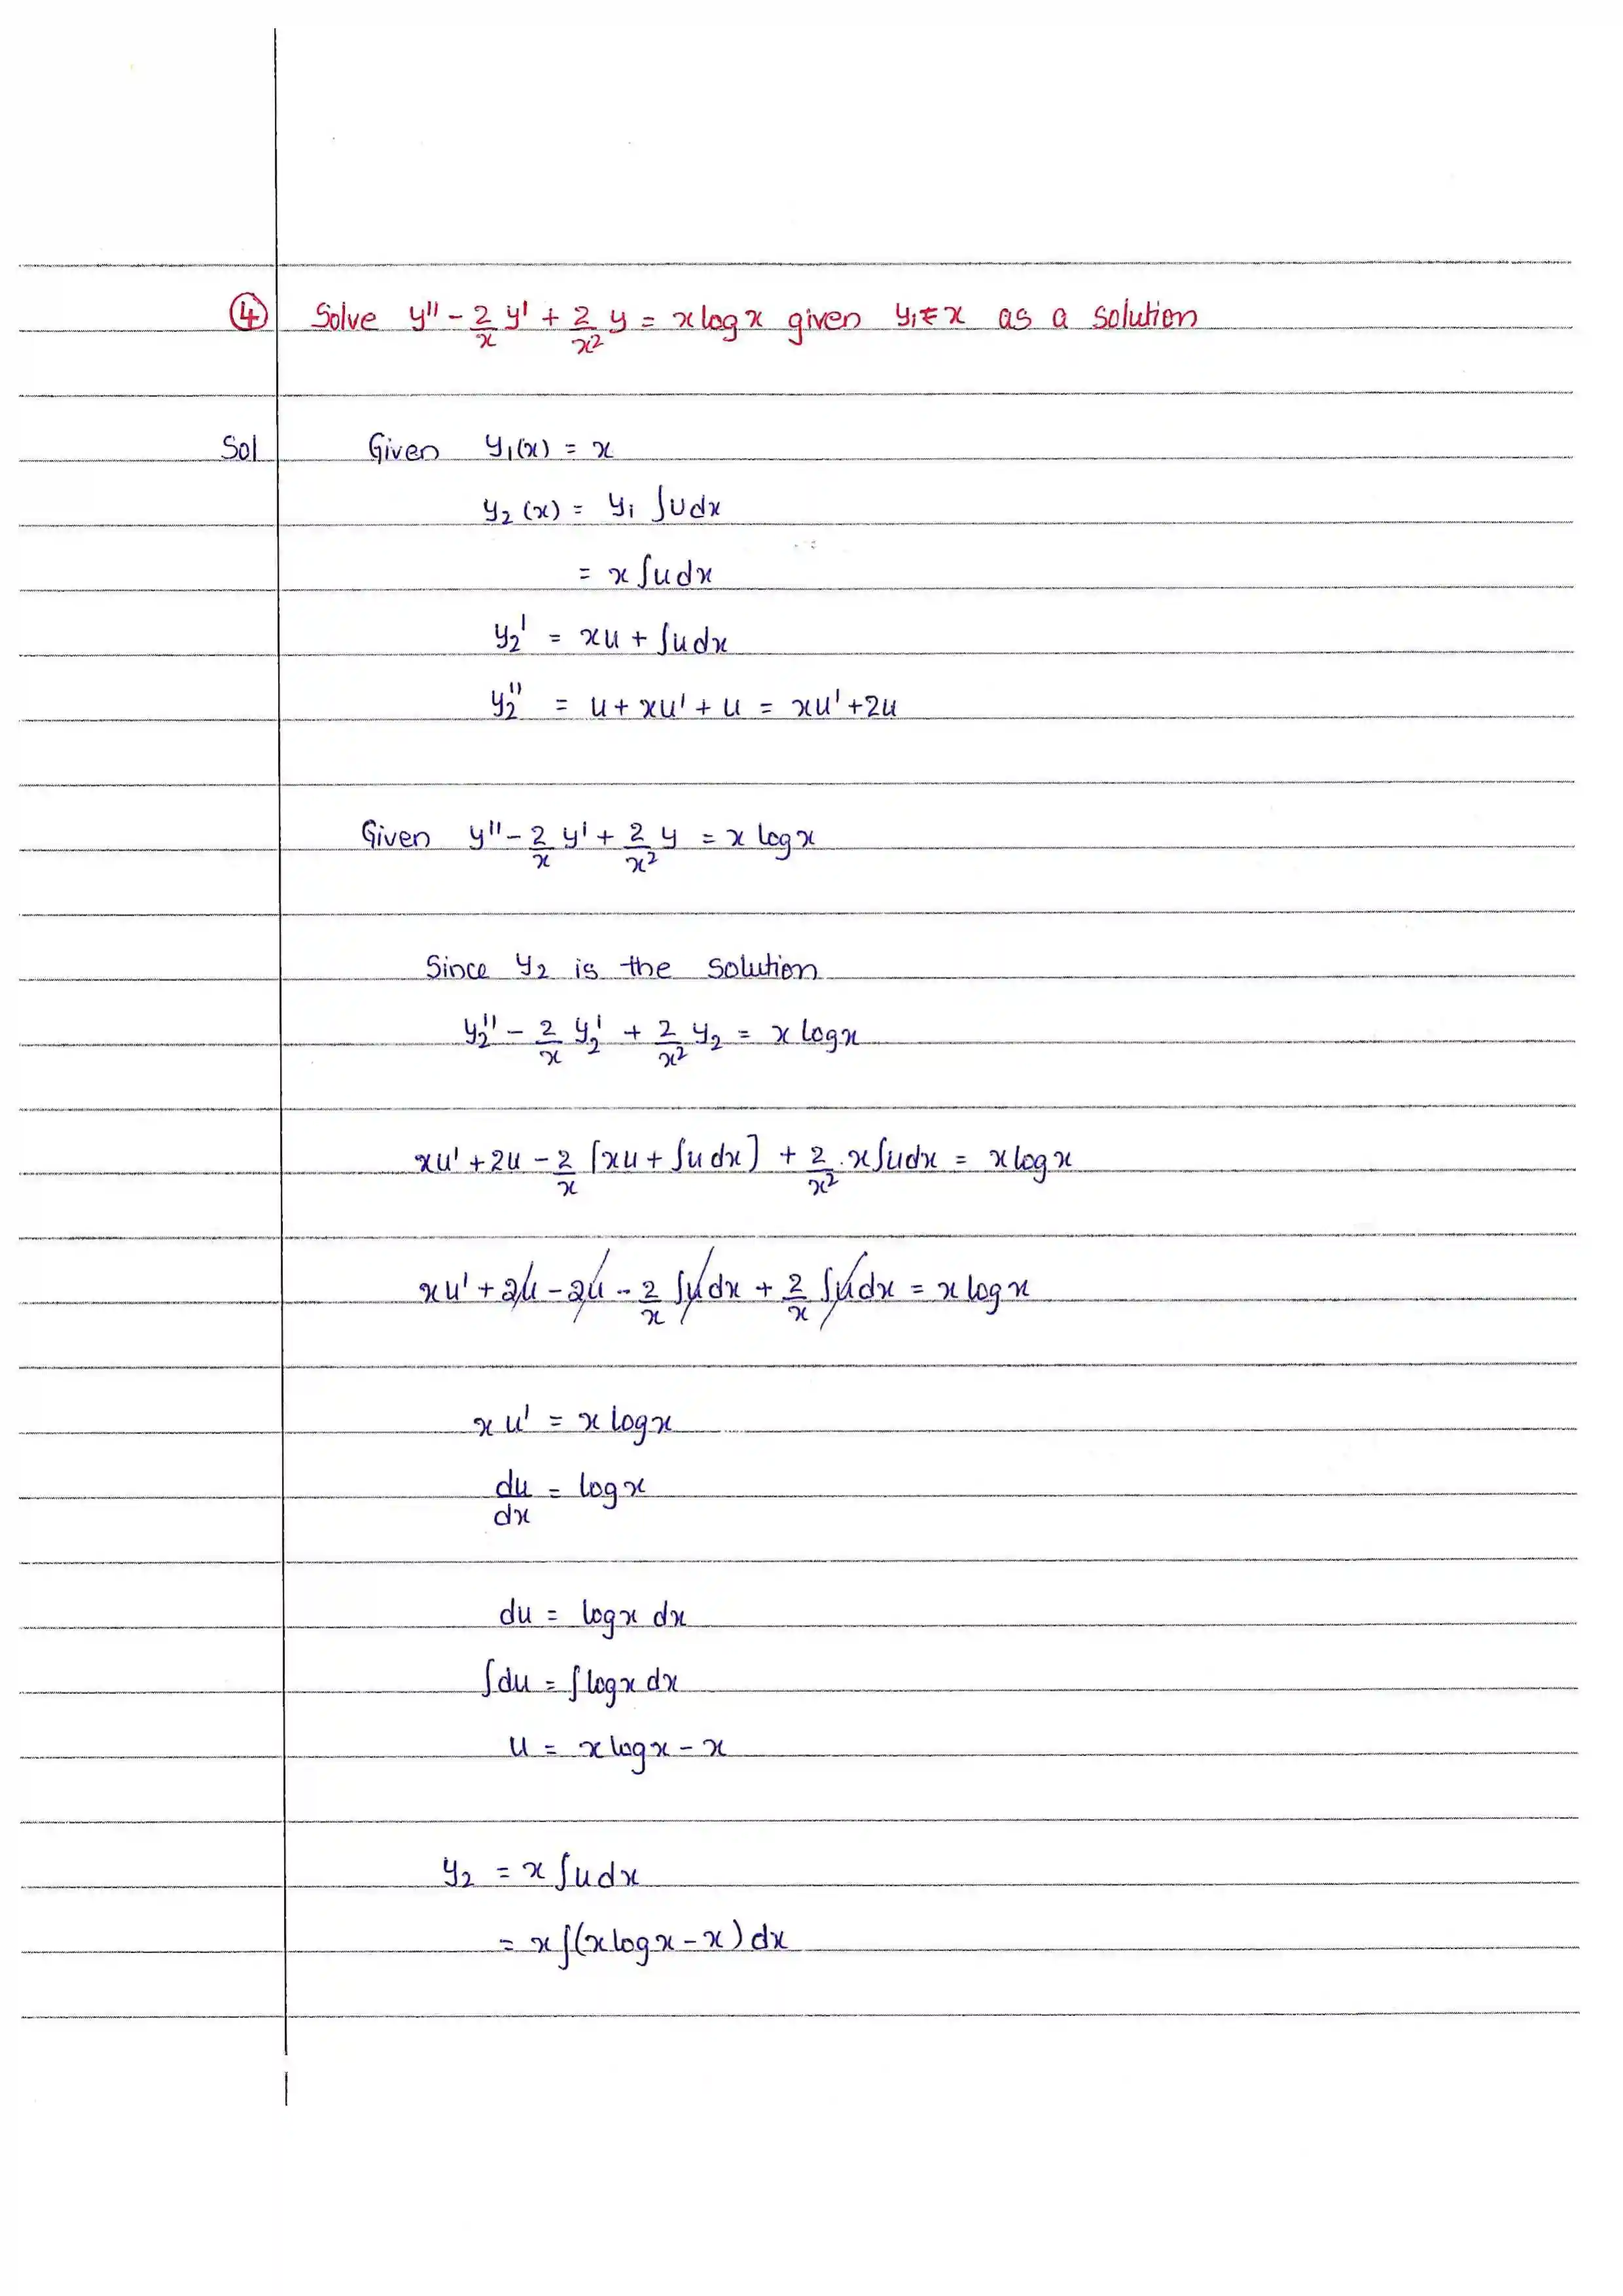 ④ Solve y'' - 2/x y' + 2/x² y = x log x given y₁ = x as a solution
Sol Given y₁(x) = x
y₂(x) = y₁ ∫u dx
= x ∫u dx
y₂' = xu + ∫u dx
y₂'' = u + xu' + u = xu' + 2u
Given y'' - 2/x y' + 2/x² y = x log x
Since y₂ is the solution
y₂'' - 2/x y₂' + 2/x² y₂ = x log x
xu' + 2u - 2/x [xu + ∫u dx] + 2/x² . x∫u dx = x log x
xu' + 2u - 2u - 2/x ∫u dx + 2/x ∫u dx = x log x
x u' = x log x
du/dx = log x
du = log x dx
∫du = ∫log x dx
u = x log x - x
y₂ = x ∫u dx
= x ∫(x log x - x) dx